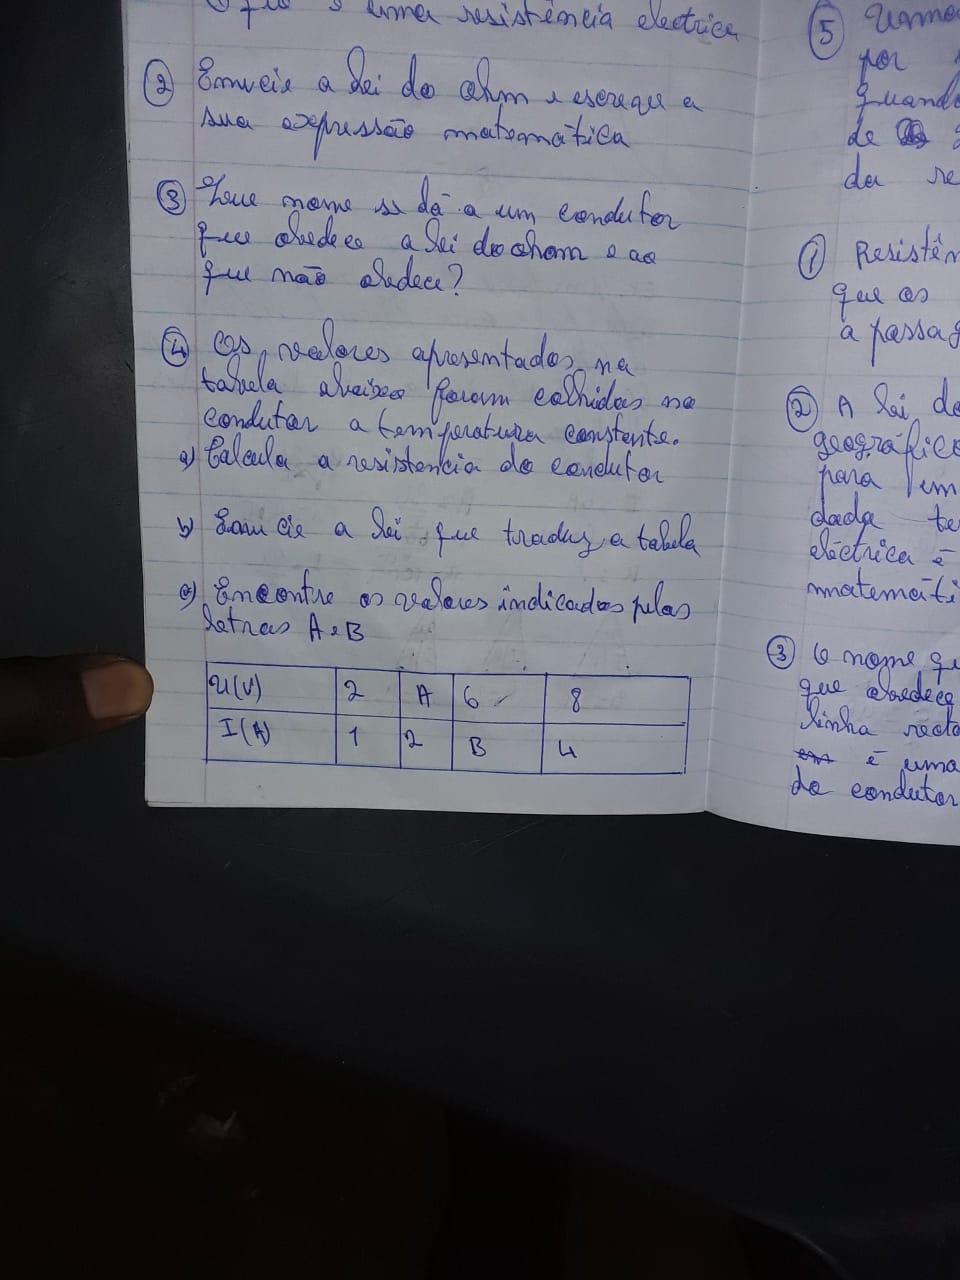 uma resistência electrica
② Enuncie a lei do ohm e escreque a
sua expressão matemática
③ Que nome se dá a um condutor
que obedece a lei do ohom e ao
que não obedece?
④ Os valores apresentados na
tabela abaixo foram colhidos no
condutor a temperatura constente.
a) Calcula a resistencia do condutor
b) Enuncie a lei que traduz a tabela
c) Encontre os valores indicados pelas
letras A e B
U(V) 2 A 6 8
I(A) 1 2 B 4
⑤
por
quando
de
da
①
que os
a passag
② A lei do
geográfico
para
dada
eléctrica é
mmatemáti
③ O nome qu
que obedece
linha recta
é uma
do condutor